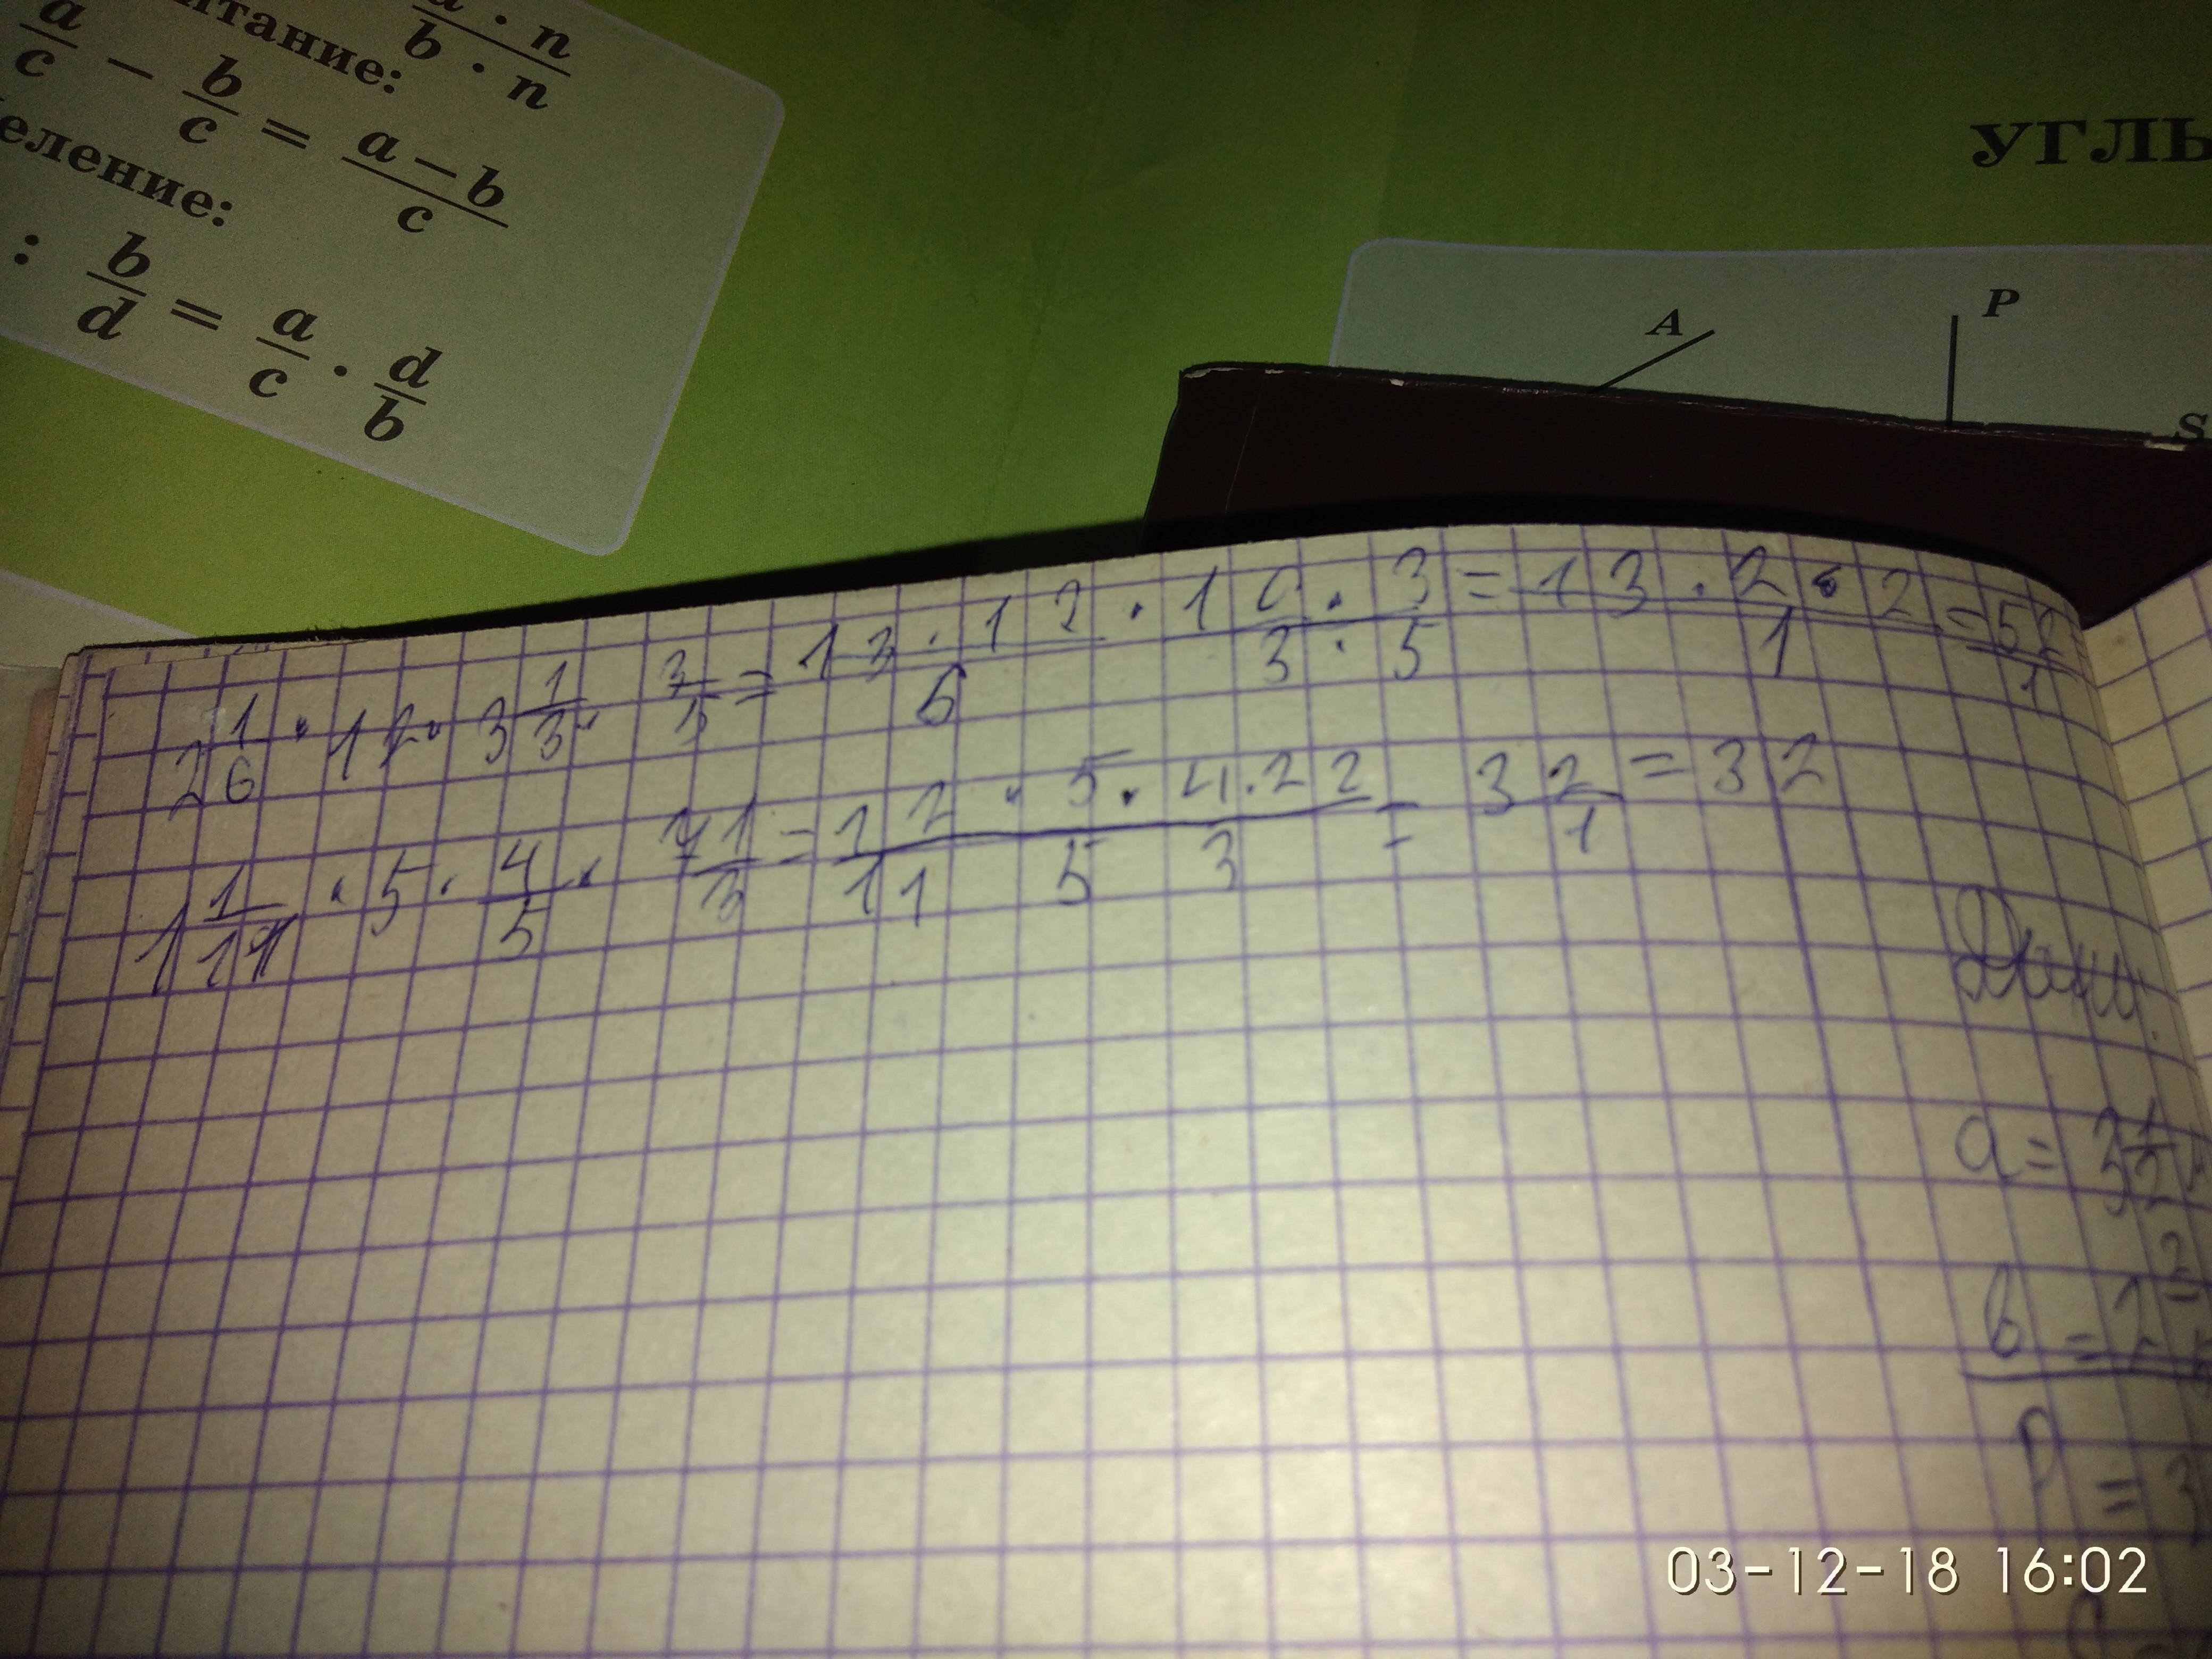 a · n
b · n
итание:
a/c − b/c = (a − b)/c
еление:
: b/d = a/c · d/b
УГЛЫ
A
P
S
2 1/6 · 12 · 3 1/3 · 3/5 = (13 · 12 · 10 · 3)/(6 3 · 5) = (13 · 2 · 2)/1 = 52/1
1 1/11 · 5 · 4/5 · /3 = (12 · 5 · 4 · 22)/(11 5 3) = 32/1 = 32
a = 3 1/2
b = 2
P = 3
03-12-18 16:02